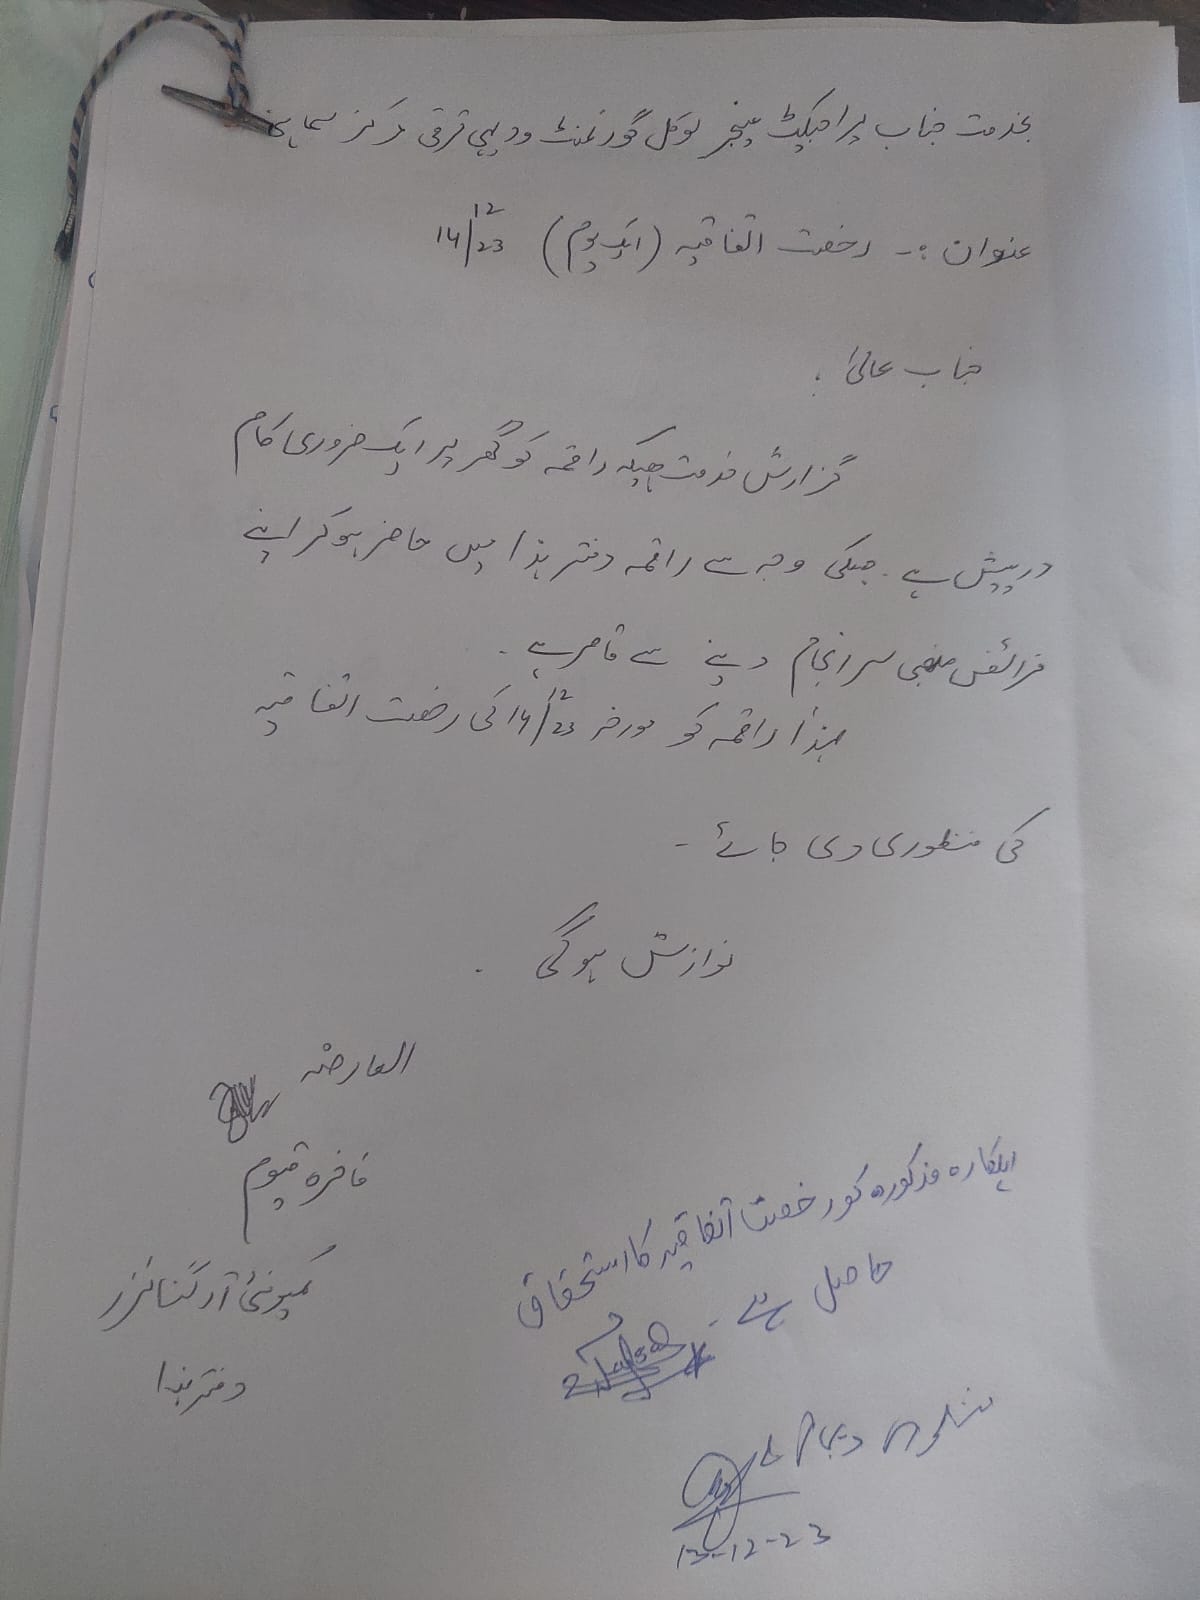 بخدمت جناب پراجیکٹ منیجر لوکل گورنمنٹ ودیہی ترقی مرکز سماہنی
عنوان :- رخصت اتفاقیہ (ایک یوم) 14/12/23
جناب عالیٰ .
گزارش خدمت ہیکہ راقمہ کو گھر پر ایک ضروری کام
درپیش ہے . جسکی وجہ سے راقمہ دفتر ہذا میں حاضر ہو کر اپنے
فرائض منصبی سرانجام دینے سے قاصر ہے .
لہذا راقمہ کو مورخہ 14/12/23 کی رخصت اتفاقیہ
کی منظوری دی جائے -
نوازش ہوگی .
العارضہ
قیوم
کمیونٹی آرگنائزر
دفتر ہذا
اہلکارہ مذکورہ کو رخصت اتفاقیہ کا استحقاق
حاصل ہے -
منظوری دی جاتی ہے
13-12-23